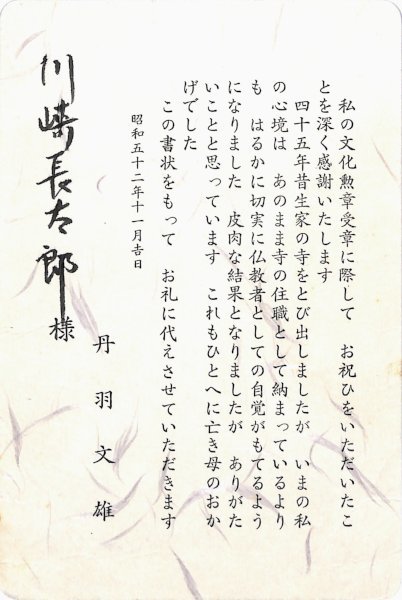 私の文化勲章受章に際して　お祝ひをいただいたこ
とを深く感謝いたします
四十五年昔生家の寺をとび出しましたが　いまの私
の心境は　あのまま寺の住職として納まっているより
も　はるかに切実に仏教者としての自覚がもてるよう
になりました　皮肉な結果となりましたが　ありがた
いことと思っています　これもひとへに亡き母のおか
げでした
この書状をもって　お礼に代えさせていただきます
昭和五十二年十一月吉日
丹羽文雄
川崎長太郎様